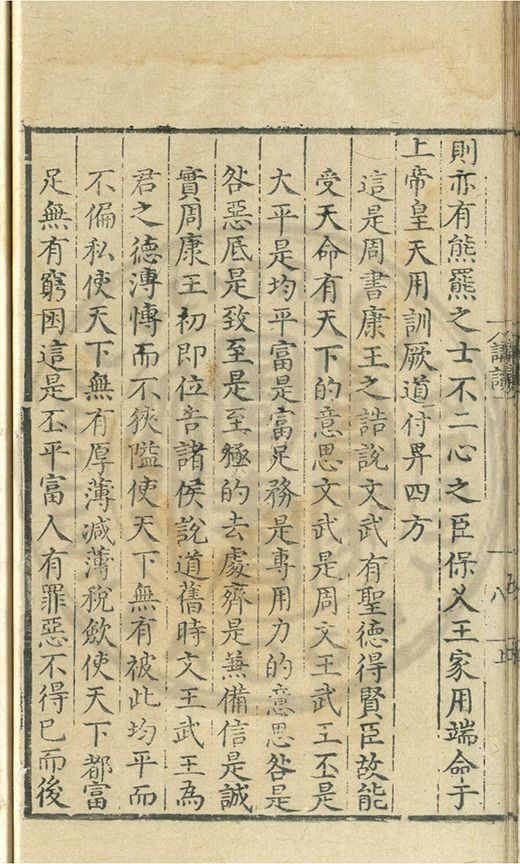 則亦有熊羆之士不二心之臣保乂王家用端命于
上帝皇天用訓厥道付畀四方
這是周書康王之誥說文武有聖德得賢臣故能
受天命有天下的意思文武是周文王武王丕是
大平是均平富是富足務是專用力的意思咎是
咎惡厎是致至是至極的去處齊是兼備信是誠
實周康王初即位告諸侯說道舊時文王武王為
君之德溥慱而不狹隘使天下無有彼此均平而
不偏私使天下無有厚薄減薄稅歛使天下都富
足無有窮困這是丕平富人有罪惡不得已而後